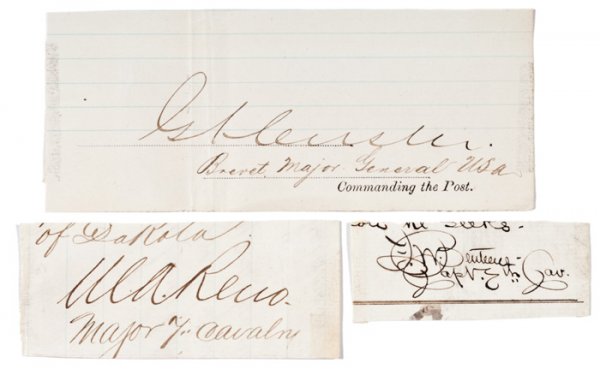 G A Custer.
Brevet, Major General USA
Commanding the Post.
of Dakota.
M A. Reno.
Major 7" Cavalry
F. W. Benteen
Capt. 7th Cav.